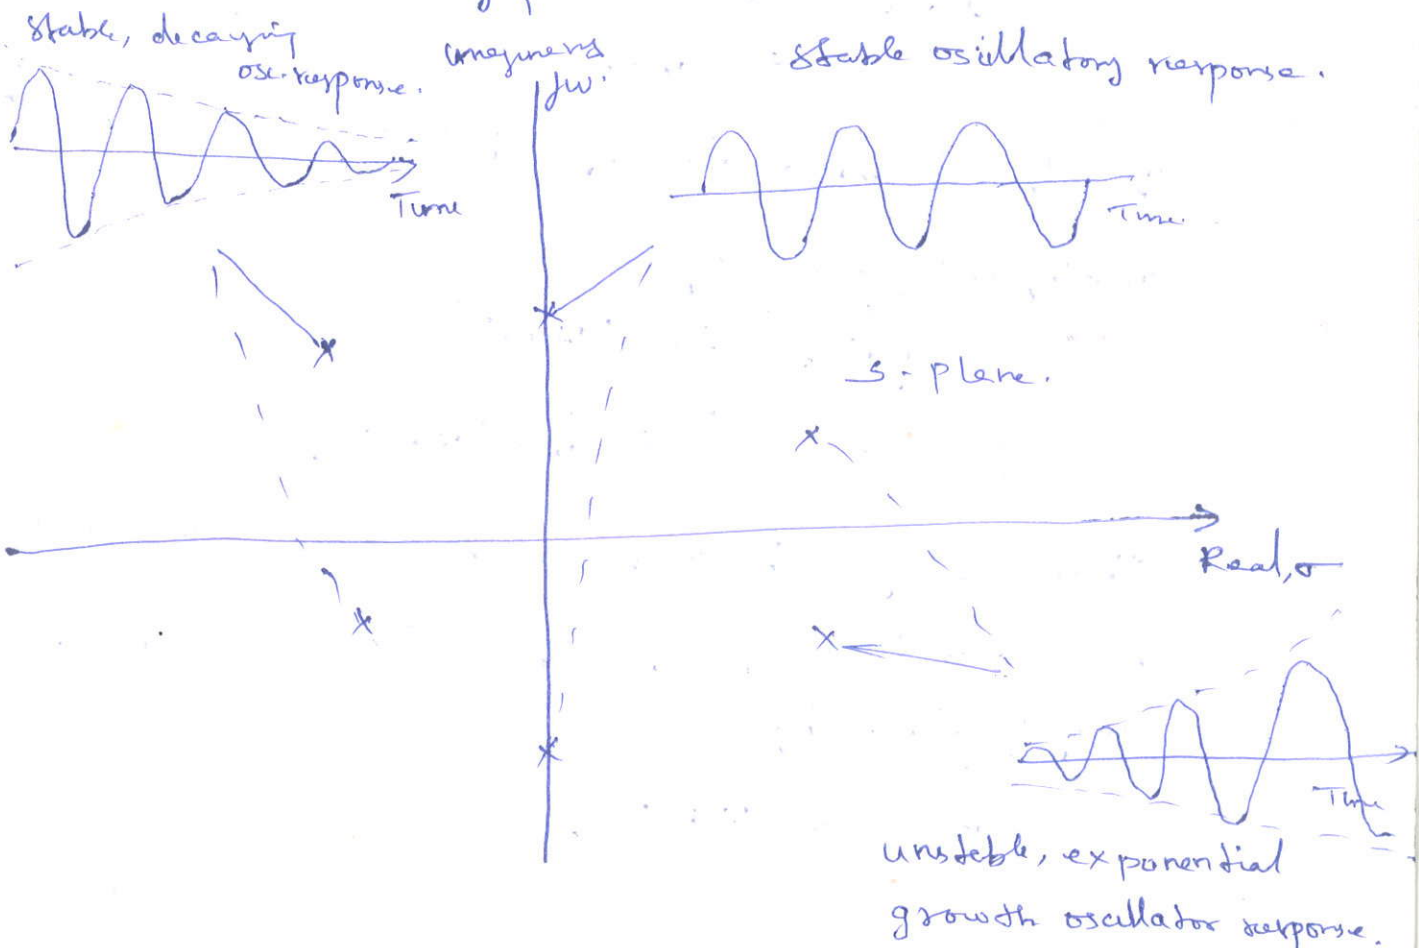 stable, decaying
osc. response.
imaginary
jw.
stable oscillatory response.
Time
Time.
s-plane.
Real, σ
Time
unstable, exponential
growth oscillator response.